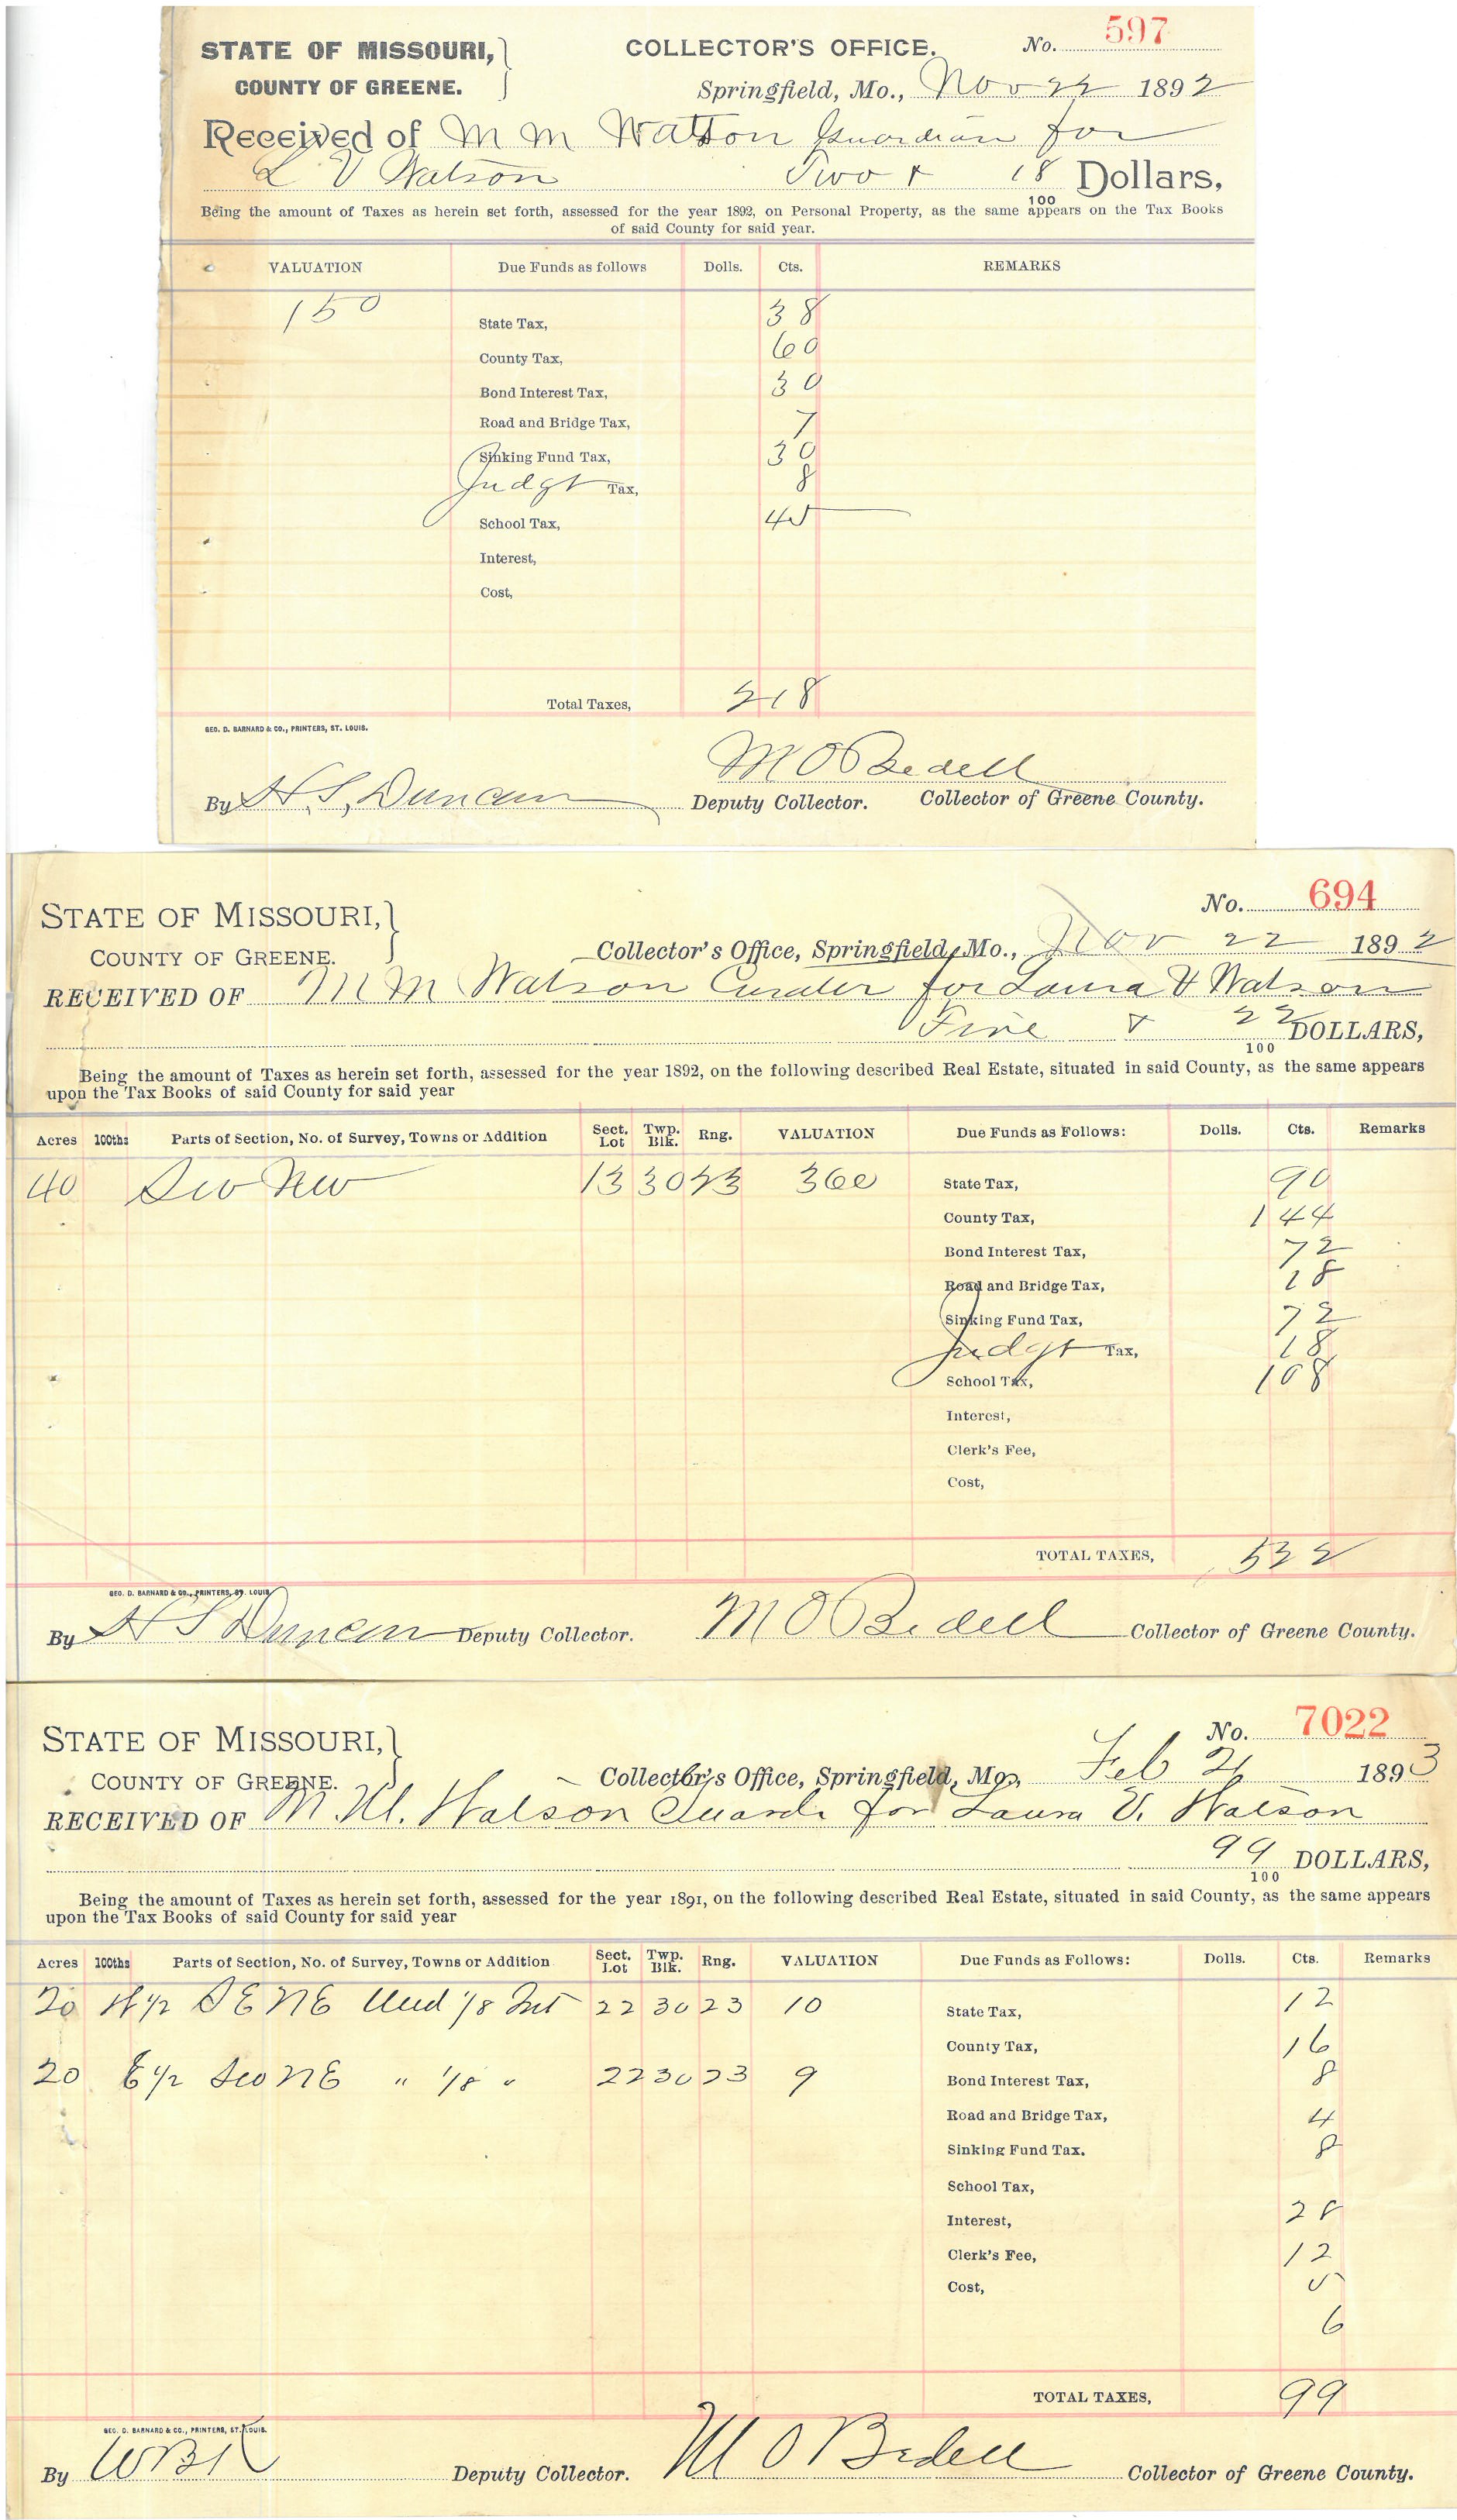 STATE OF MISSOURI, COLLECTOR'S OFFICE. No. 597
COUNTY OF GREENE. Springfield, Mo., Nov 22 1892
Received of M M Watson Guardian for
L V Watson Two & 18/100 Dollars,
Being the amount of Taxes as herein set forth, assessed for the year 1892, on Personal Property, as the same appears on the Tax Books
of said County for said year.
VALUATION Due Funds as follows Dolls. Cts. REMARKS
150 State Tax, 38
County Tax, 60
Bond Interest Tax, 30
Road and Bridge Tax, 7
Sinking Fund Tax, 30
Judgt Tax, 8
School Tax, 45
Interest,
Cost,
Total Taxes, 2 18
GEO. D. BARNARD & CO., PRINTERS, ST. LOUIS.
M O Bedell
By H. S. Duncan Deputy Collector. Collector of Greene County.
No. 694
STATE OF MISSOURI,
COUNTY OF GREENE. Collector's Office, Springfield, Mo., Nov 22 1892
RECEIVED OF M M Watson Curator for Laura V Watson
Five & 22/100 DOLLARS,
Being the amount of Taxes as herein set forth, assessed for the year 1892, on the following described Real Estate, situated in said County, as the same appears
upon the Tax Books of said County for said year
Acres 100ths Parts of Section, No. of Survey, Towns or Addition Sect. Lot Twp. Blk. Rng. VALUATION Due Funds as Follows: Dolls. Cts. Remarks
40 Sw Nw 13 30 23 360 State Tax, 90
County Tax, 1 44
Bond Interest Tax, 72
Road and Bridge Tax, 18
Sinking Fund Tax, 72
Judgt Tax, 18
School Tax, 1 08
Interest,
Clerk's Fee,
Cost,
TOTAL TAXES, 5 22
GEO. D. BARNARD & CO., PRINTERS, ST. LOUIS
By H S Duncan Deputy Collector. M O Bedell Collector of Greene County.
No. 7022
STATE OF MISSOURI,
COUNTY OF GREENE. Collector's Office, Springfield, Mo., Feb 21 1893
RECEIVED OF M. M. Watson Guardi for Laura V. Watson
99/100 DOLLARS,
Being the amount of Taxes as herein set forth, assessed for the year 1891, on the following described Real Estate, situated in said County, as the same appears
upon the Tax Books of said County for said year
Acres 100ths Parts of Section, No. of Survey, Towns or Addition Sect. Lot Twp. Blk. Rng. VALUATION Due Funds as Follows: Dolls. Cts. Remarks
20 W 1/2 S E N E Und 1/8 Int 22 30 23 10 State Tax, 12
County Tax, 16
20 E 1/2 Sw N E " 1/8 " 22 30 23 9 Bond Interest Tax, 8
Road and Bridge Tax, 4
Sinking Fund Tax. 8
School Tax,
Interest, 28
Clerk's Fee, 12
Cost, 5
6
TOTAL TAXES, 99
GEO. D. BARNARD & CO., PRINTERS, ST. LOUIS.
By Deputy Collector. M O Bedell Collector of Greene County.